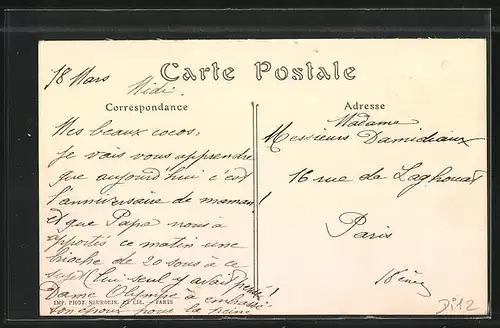 18 Mars
Midi.
Carte Postale
Correspondance
Adresse
Mes beaux cocos,
Je vais vous apprendre
que aujourd'hui c'est
l'anniversaire de maman!
et que Papa nous a
apportés ce matin une
brioche de 20 sous à ce
sujet (lui seul y avait pensé!
Dame Olympe a embrassé
son époux pour la peine
IMP. PHOT. NEURDEIN ET CIE. - PARIS
Madame
Messieurs Damidiaux
16 rue de Laghouat
Paris
18ème
Di12